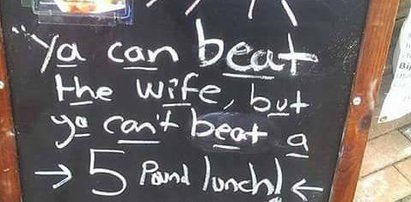 "Ya can beat
the wife, but
ya can't beat a
→ 5 Pound lunch! ←